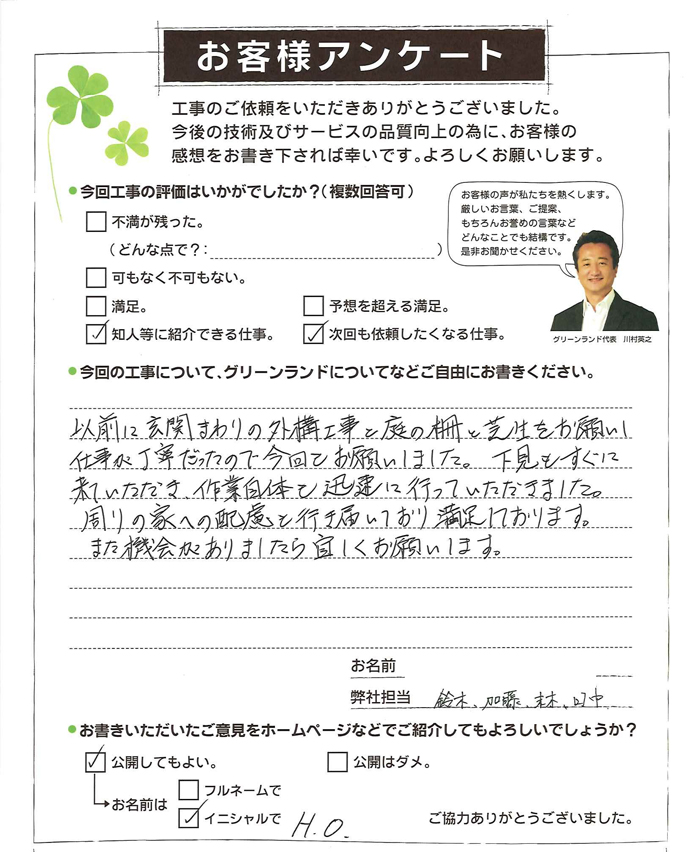 お客様アンケート
工事のご依頼をいただきありがとうございました。
今後の技術及びサービスの品質向上の為に、お客様の
感想をお書き下されば幸いです。よろしくお願いします。
●今回工事の評価はいかがでしたか?(複数回答可)
不満が残った。
(どんな点で?: )
可もなく不可もない。
満足。
予想を超える満足。
知人等に紹介できる仕事。
次回も依頼したくなる仕事。
お客様の声が私たちを熱くします。
厳しいお言葉、ご提案、
もちろんお誉めの言葉など
どんなことでも結構です。
是非お聞かせください。
グリーンランド代表 川村英之
●今回の工事について、グリーンランドについてなどご自由にお書きください。
以前に玄関まわりの外構工事と庭の柵と芝生をお願いし
仕事が丁寧だったので今回もお願いしました。下見もすぐに
来ていただき、作業自体も迅速に行っていただきました。
周りの家への配慮も行き届いており満足しております。
また機会がありましたら宜しくお願いします。
お名前
弊社担当 鈴木、加藤、末木、田中
●お書きいただいたご意見をホームページなどでご紹介してもよろしいでしょうか?
公開してもよい。
公開はダメ。
お名前は
フルネームで
イニシャルで H.O.
ご協力ありがとうございました。